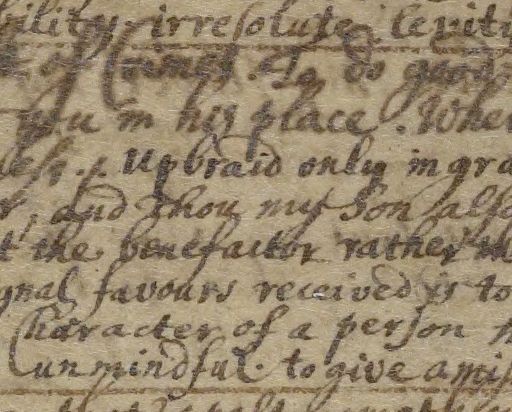 bility irresolute levity
of Crimes. To do good
you in his place. When
ness. Upbraid only ingra
and thou my son also
the benefactor rather th
gnal favours received is to
Character of a person
unmindful. to give amis